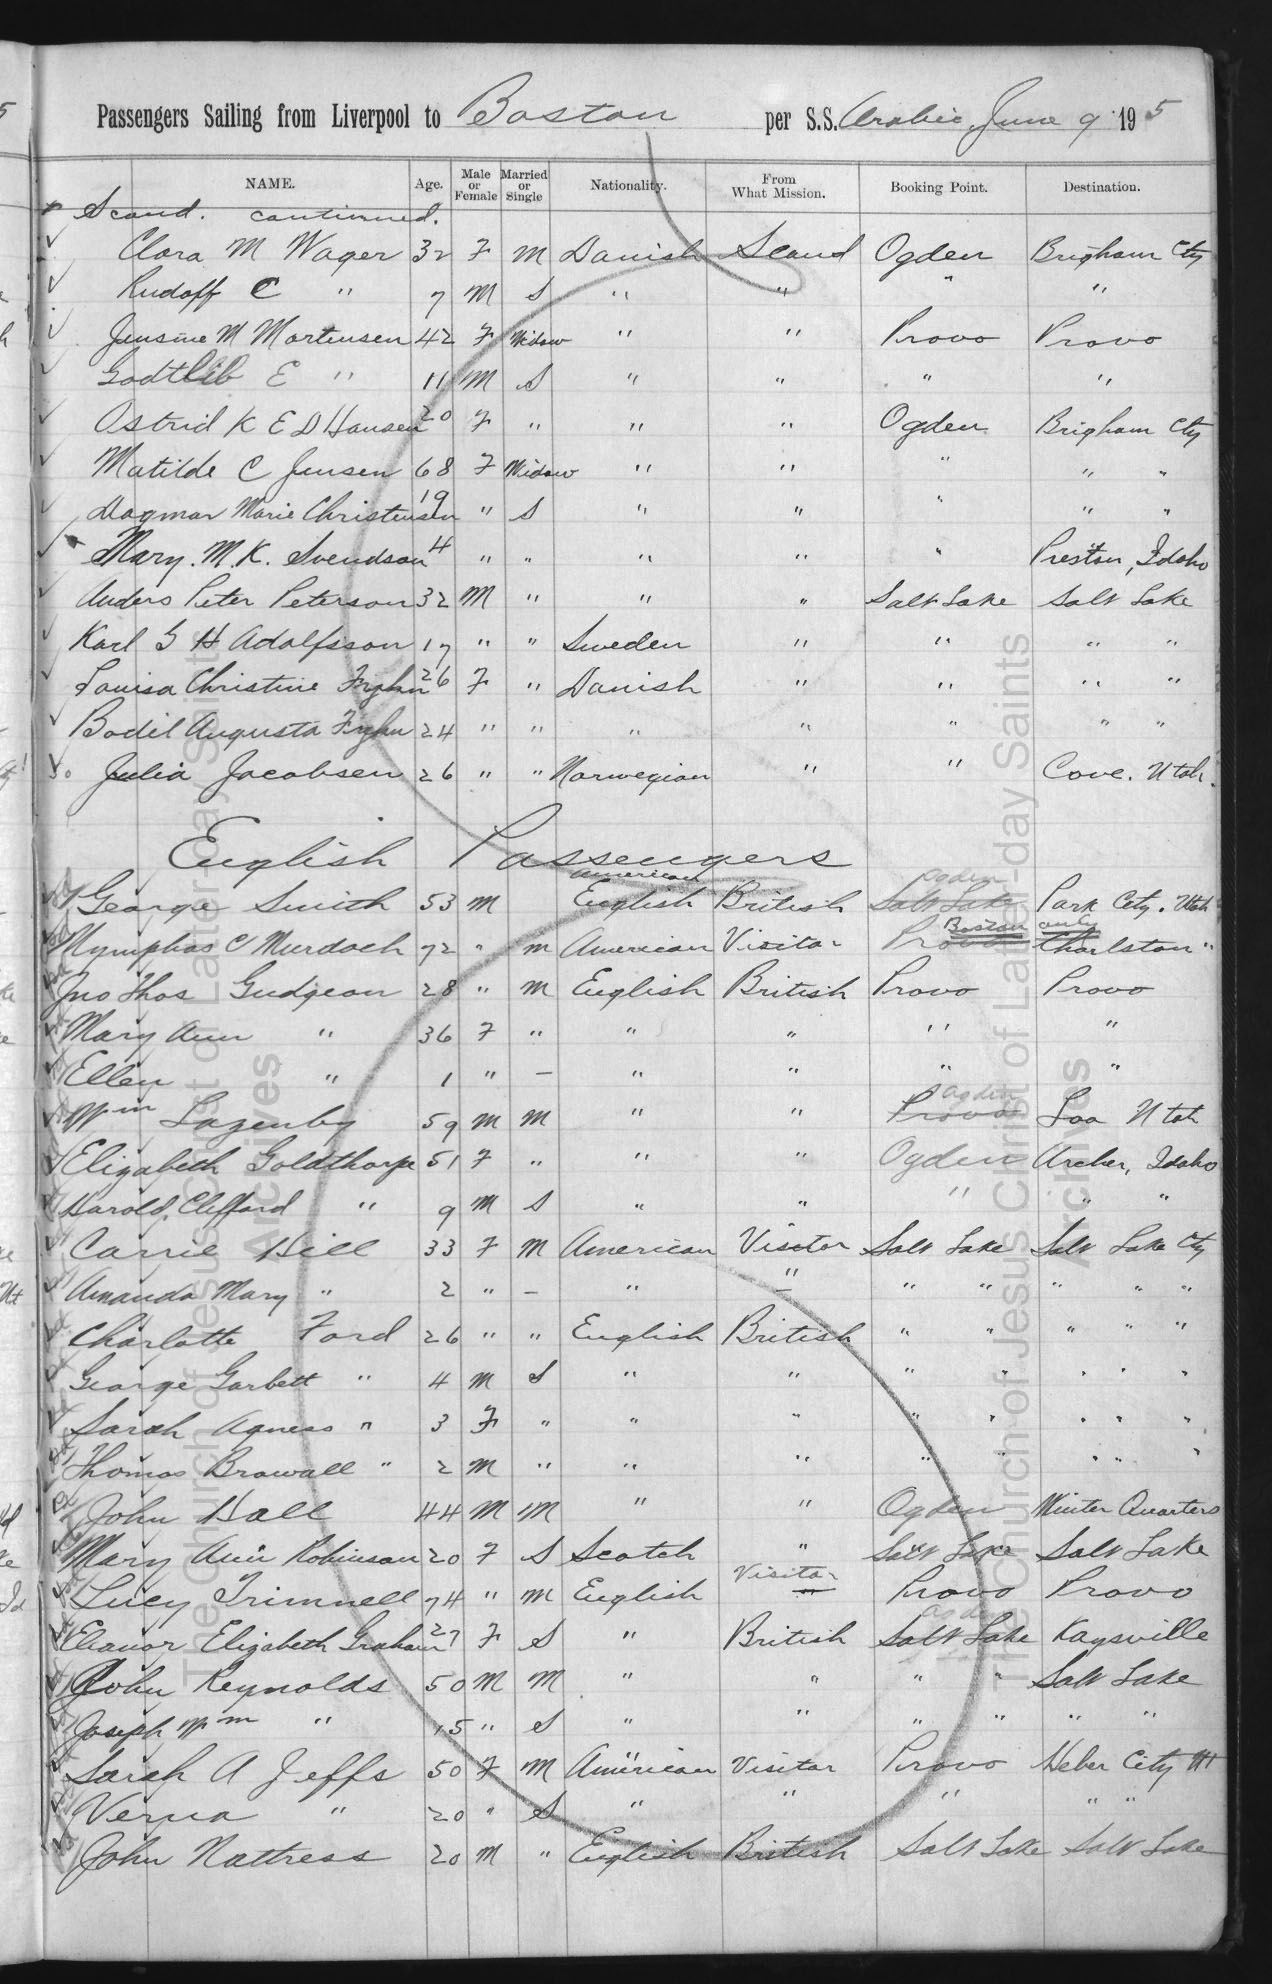 Passengers Sailing from Liverpool to Boston per S.S. Arabic June 9 1905
NAME. Age. Male or Female Married or Single Nationality. From What Mission. Booking Point. Destination.
Scand. continued.
Clara M Wager 32 F M Danish Scand Ogden Brigham Cty
Rudolf C " 7 M S " " " "
Jensine M Mortensen 42 F Widow " " Provo Provo
Godtlib E " 11 M S " " " "
Astrid K E D Hansen 20 F " " " Ogden Brigham Cty
Matilde C Jensen 68 F Widow " " " " "
Dagmar Marie Christensen 19 " S " " " " "
Mary. M. K. Svendson 4 " " " " " Preston, Idaho
Anders Peter Peterson 32 M " " " Salt Lake Salt Lake
Karl G H Adolfsson 17 " " Sweden " " " "
Louisa Christine Fryhn 26 F " Danish " " " "
Bodil Augusta Fryhn 24 " " " " " " "
Julia Jacobsen 26 " " Norwegian " " Cove. Utah.
English Passengers
American Ogden
George Smith 53 M English British Salt Lake Park City. Utah
Boston only
Nymphas C Murdoch 72 " M American Visitor Provo Charlston "
Jno Thos Gudgeon 28 " M English British Provo Provo
Mary Ann " 36 F " " " " "
Ellen " 1 " – " " " "
Ogden
Wm Lazenby 59 M M " " Provo Loa Utah
Elizabeth Goldthorpe 51 F " " " Ogden Archer, Idaho
Harold Clifford " 9 M S " " " " "
Carrie Hill 33 F M American Visitor Salt Lake Salt Lake Cty
Amanda Mary " 2 " – " " " " " " "
Charlotte Ford 26 " " English British " " " " "
George Garbett " 4 M S " " " " " " "
Sarah Agness " 3 F " " " " " " " "
Thomas Browall " 2 M " " " " " " " "
John Hall 44 M M " " Ogden Winter Quarters
Mary Ann Robinson 20 F S Scotch " Salt Lake Salt Lake
Lucy Trimnell 74 " M English Visitor Provo Provo
Ogden
Eleanor Elizabeth Graham 27 F S " British Salt Lake Kaysville
John Reynolds 50 M M " " " " Salt Lake
Joseph Wm " 15 " S " " " " " "
Sarah A Jeffs 50 F M American Visitor Provo Heber City Ut
Verna " 20 " S " " " " "
John Nattress 20 M " English British Salt Lake Salt Lake
The Church of Jesus Christ of Latter-day Saints
Archives
The Church of Jesus Christ of Latter-day Saints
Archives